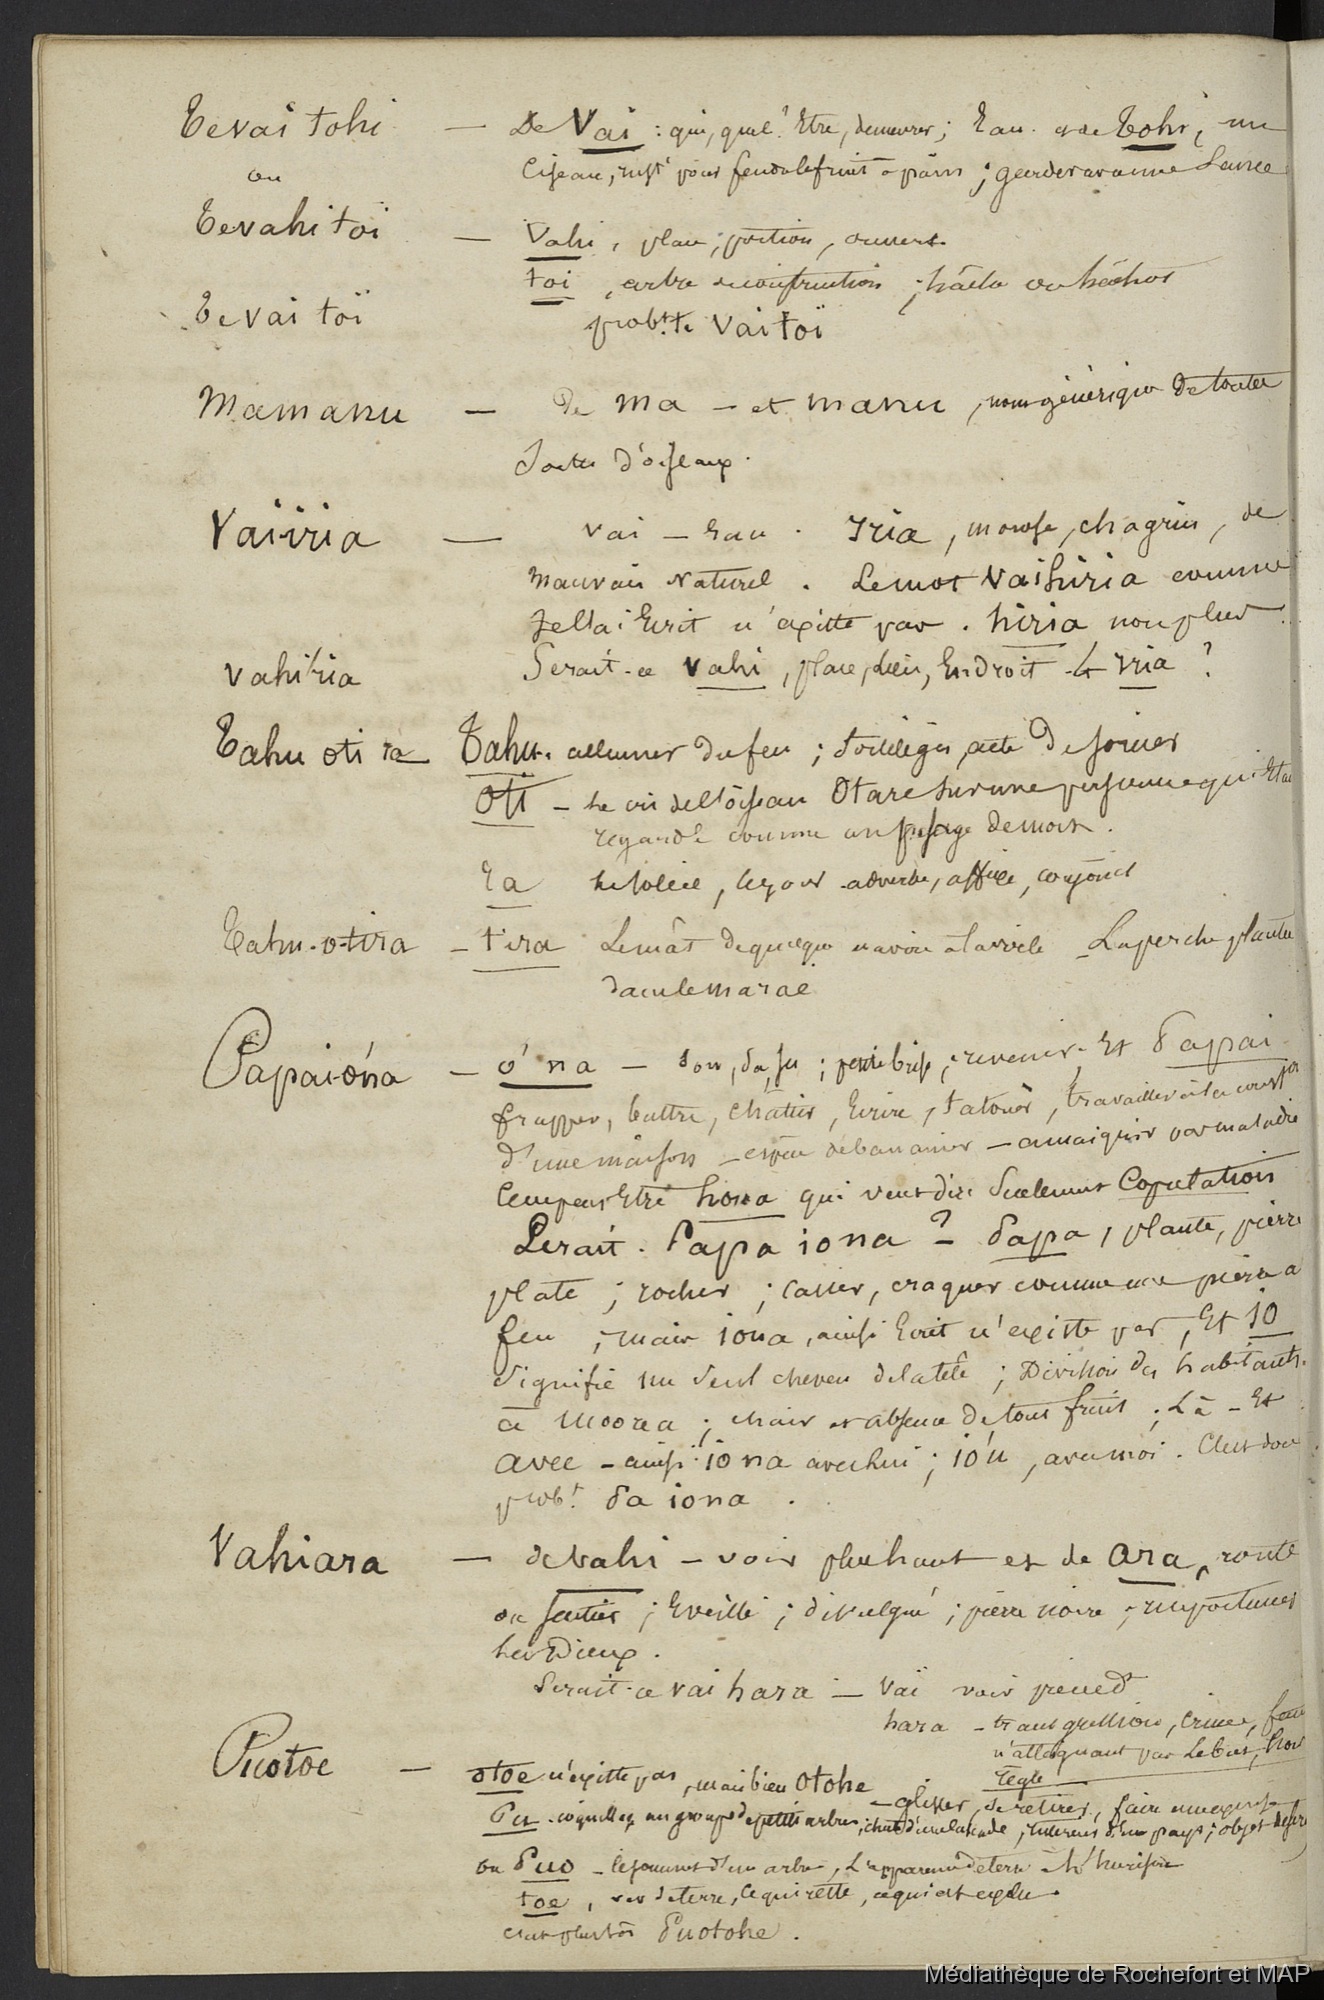 Tevai tohi — De Vai : qui, quel ? Etre, demeurer ; Eau. et de Tohi, un
ou Ciseau, inst' pour fendre le fruit à pain ; garder avec une Lance
Tevahitoï — Vahi, place ; portion, ouvert
toi, arbre de construction ; hache ou
Tevai toï prob.t Te Vaitoï
Mamanu — De ma — et manu, nom générique de toutes
Sortes d'oiseaux.
Vaiiria — Vai — Eau. Iria, morose, chagrin, de
mauvais naturel. Le mot Vaihiria comme
je l'ai Ecrit n'existe pas. hiria non plus
vahi'ria Serait-ce vahi, place, lieu, Endroit et iria ?
Tahu oti ra Tahu. allumer du feu ; sortilèges, acte de sorcier
Oti — le cri de l'oiseau Otare sur une personne qui Etait
regardé comme un présage de mort.
Ra le soleil, le jour adverbe, affixe, conjonct
Tahu-o-tira — tira Le mât de quelque navire à la voile — La perche plantée
dans le maraë
Papai-o'na — o'na — son, sa, ses ; petite brise ; revenir. Et Papai
frapper, battre, châtier, Ecrire, tatouer, travailler à la const.on
d'une maison — espèce de bananier — amaigrir par maladie
Ce ne peut Etre hona qui veut dire seulement Copulation
Serait. Papa iona ? — Papa, plante, pierre
plate ; rocher ; casser, craquer comme une pierre à
feu ; mais iona, ainsi Ecrit n'existe pas, Et io
signifie un seul cheveu de la tête ; Division des habitants
à Moorea ; chair et absence de tout fruit ; Là — Et
avec — ainsi iona avec lui ; io'u, avec moi. C'est donc
prob.t Pa iona.
Vahiara — de Vahi — voir plus haut et de ara, route
ou sentier ; Eveillé ; divulgué ; pierre noire ; importuner
les Dieux.
Serait-ce vai hara — Vaï voir précéd.t
hara — transgression, crime, faute
n'attaquant pas Le but, hors
règle
Puotoe — otoe n'existe pas, mais bien Otohe — glisser, se retirer, faire
Pu — coquilles, un groupe de petits arbres, chute d'une cascade, intérieur d'un pays ; objet
ou Puo — le sommet d'un arbre, L'apparence de terre à l'horizon
toe, ver de terre, ce qui reste, ce qui est exclu.
c'est plutôt Puotohe.
Médiathèque de Rochefort et MAP